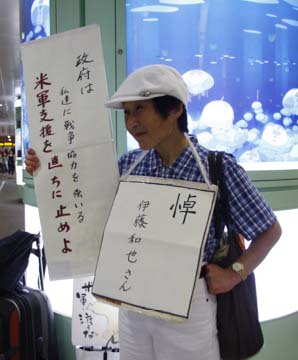 政府は
私達に戦争協力を強いる
米軍支援を直ちに止めよ
悼
伊藤和也さん